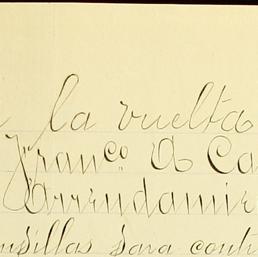 a la vuelta
Franco A Ca
Arrendamie
ansillas para conti